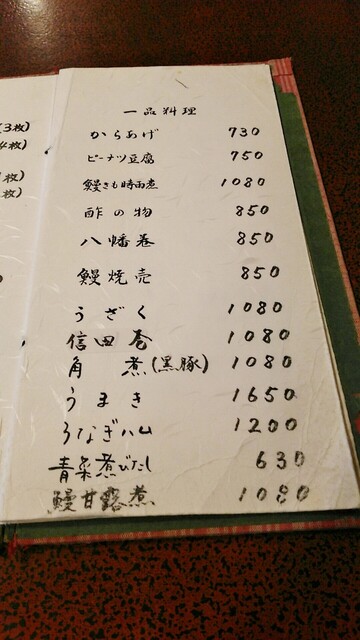 (3枚)
4枚)
枚)
枚)
一品料理
からあげ 730
ピーナツ豆腐 750
鰻きも時雨煮 1080
酢の物 850
八幡巻 850
鰻焼売 850
うざく 1080
信田巻 1080
角煮(黒豚) 1080
うまき 1650
うなぎハム 1200
青菜煮びたし 630
鰻甘露煮 1080